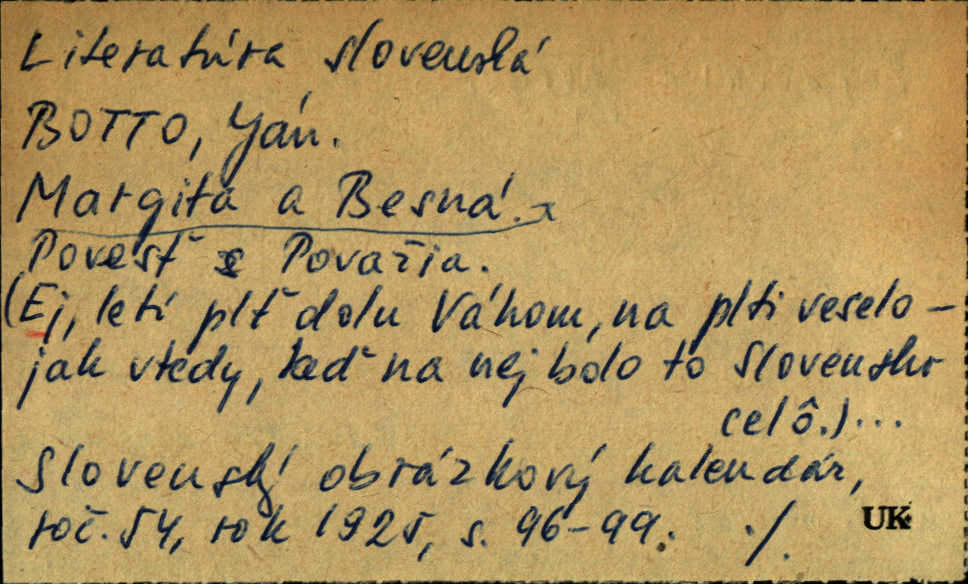 Literatúra slovenská
BOTTO, Ján.
Margita a Besná.
Povesť z Považia.
(Ej, letí plť dolu Váhom, na plti veselo –
jak vtedy, keď na nej bolo to Slovensko
celô.)...
Slovenský obrázkový kalendár,
roč. 54, rok 1925, s. 96-99. ./.
UK